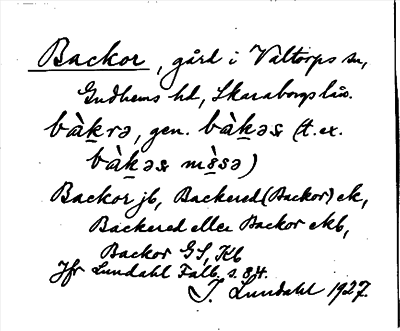 Backor, gård i Valtorps sn,
Gudhems hd, Skaraborgs län.
bàkrə, gen. bàkəs (t.ex.
bàkəs mòsə)
Backor jb, Backered (Backor) ek,
Backered eller Backor ekb,
Backor GS, Kb
Jfr Lundahl Falb. s. 84.
I. Lundahl 1927.